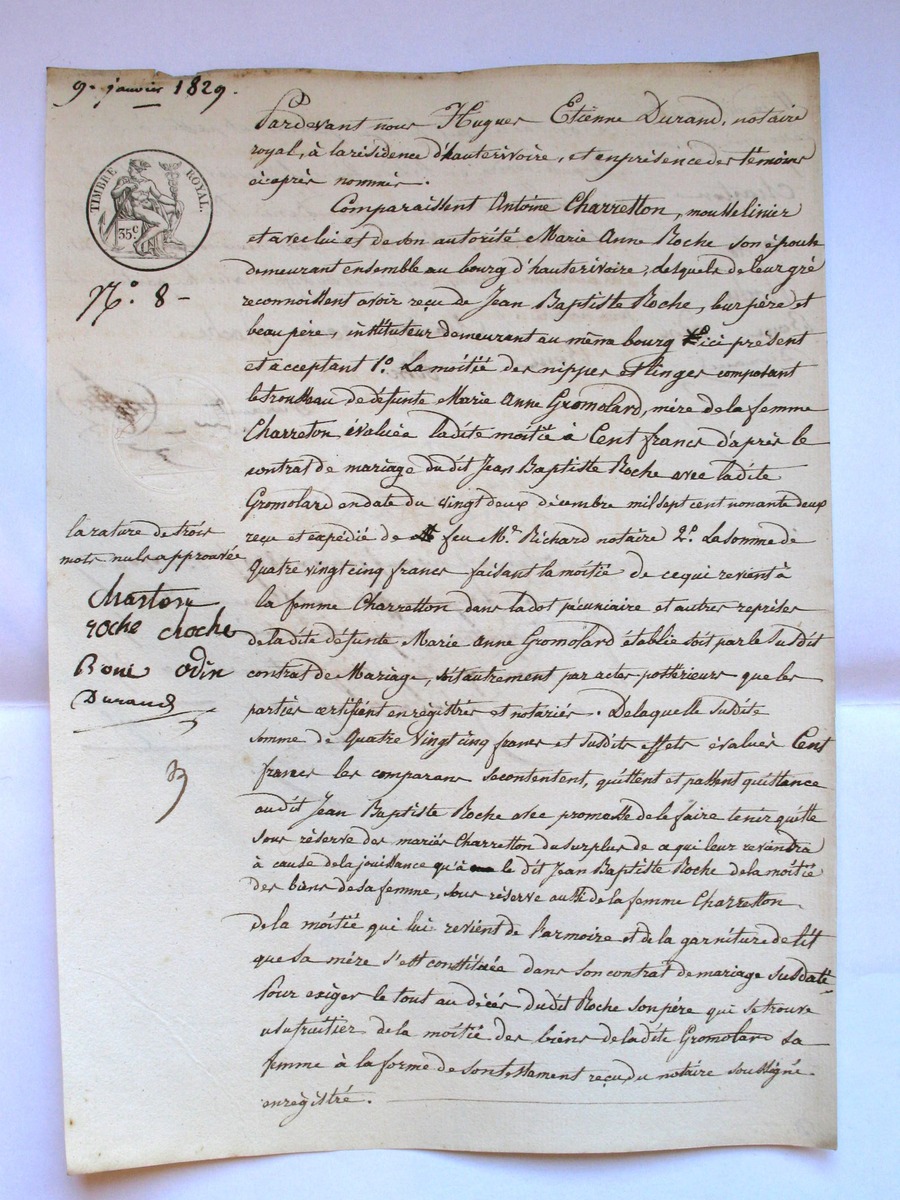 9. janvier 1829.
TIMBRE ROYAL.
35c
N.o 8 -
la rature de trois
mots nuls approuvée
Charton
roche croche
Roue odin
Durand
Pardevant nous Hugues Etienne Durand, notaire
royal, à la résidence d'hauterivoire, et en présence des témoins
ci après nommés.
Comparaissent Antoine Charretton, mousselinier
et avec lui et de son autorité Marie Anne Roche son épouse
demeurant ensemble au bourg d'hauterivoire, Lesquels de leur gré
reconnoissent avoir reçu de Jean Baptiste Roche, leur père et
beau père, instituteur demeurant au même bourg ici présent
et acceptant 1.o La moitié des nippes et linges composant
le trousseau de défunte Marie Anne Gromolard, mère de la femme
Charreton, évaluée ladite moitié à Cent francs d'après le
contrat de mariage dudit Jean Baptiste Roche avec ladite
Gromolard en date du vingt deux décembre mil sept cent nonante deux
reçu et expédié de feu M.e Richard notaire 2.o La somme de
Quatre vingt cinq francs faisant la moitié de ce qui revient à
la femme Charretton dans la dot pécuniaire et autres reprises
de ladite défunte Marie Anne Gromolard établie soit par le susdit
contrat de Mariage, soit autrement par actes postérieurs que les
parties certifient enregistrés et notariés. De laquelle susdite
somme de Quatre vingt cinq francs et susdits effets évalués Cent
francs les comparans se contentent, quittent et passent quittance
audit Jean Baptiste Roche avec promesse de le faire tenir quitte
sous réserve des mariés Charretton du surplus de ce qui leur reviendra
à cause de la jouissance qu'à le dit Jean Baptiste Roche de la moitié
des biens de sa femme, sous réserve aussi de la femme Charretton.
de la moitié qui lui revient de l'armoire et de la garniture de lit
que sa mère s'est constituée dans son contrat de mariage susdaté
Pour exiger le tout au décès dudit Roche son père qui se trouve
usufruitier de la moitié des biens de ladite Gromolard sa
femme à la forme de son testament reçu du notaire soussigné
enregistré.